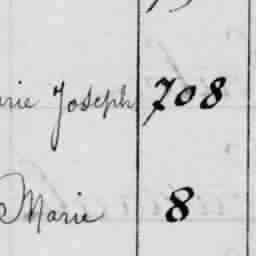 Joseph 708
Marie 8